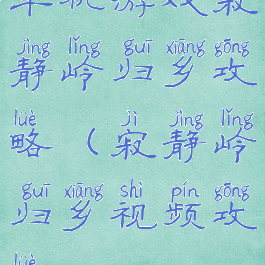 jìng lǐng guī xiāng gōng
静岭归乡攻
lüè jì jìng lǐng
略(寂静岭
guī xiāng shì pín gōng
归乡视频攻
lüè